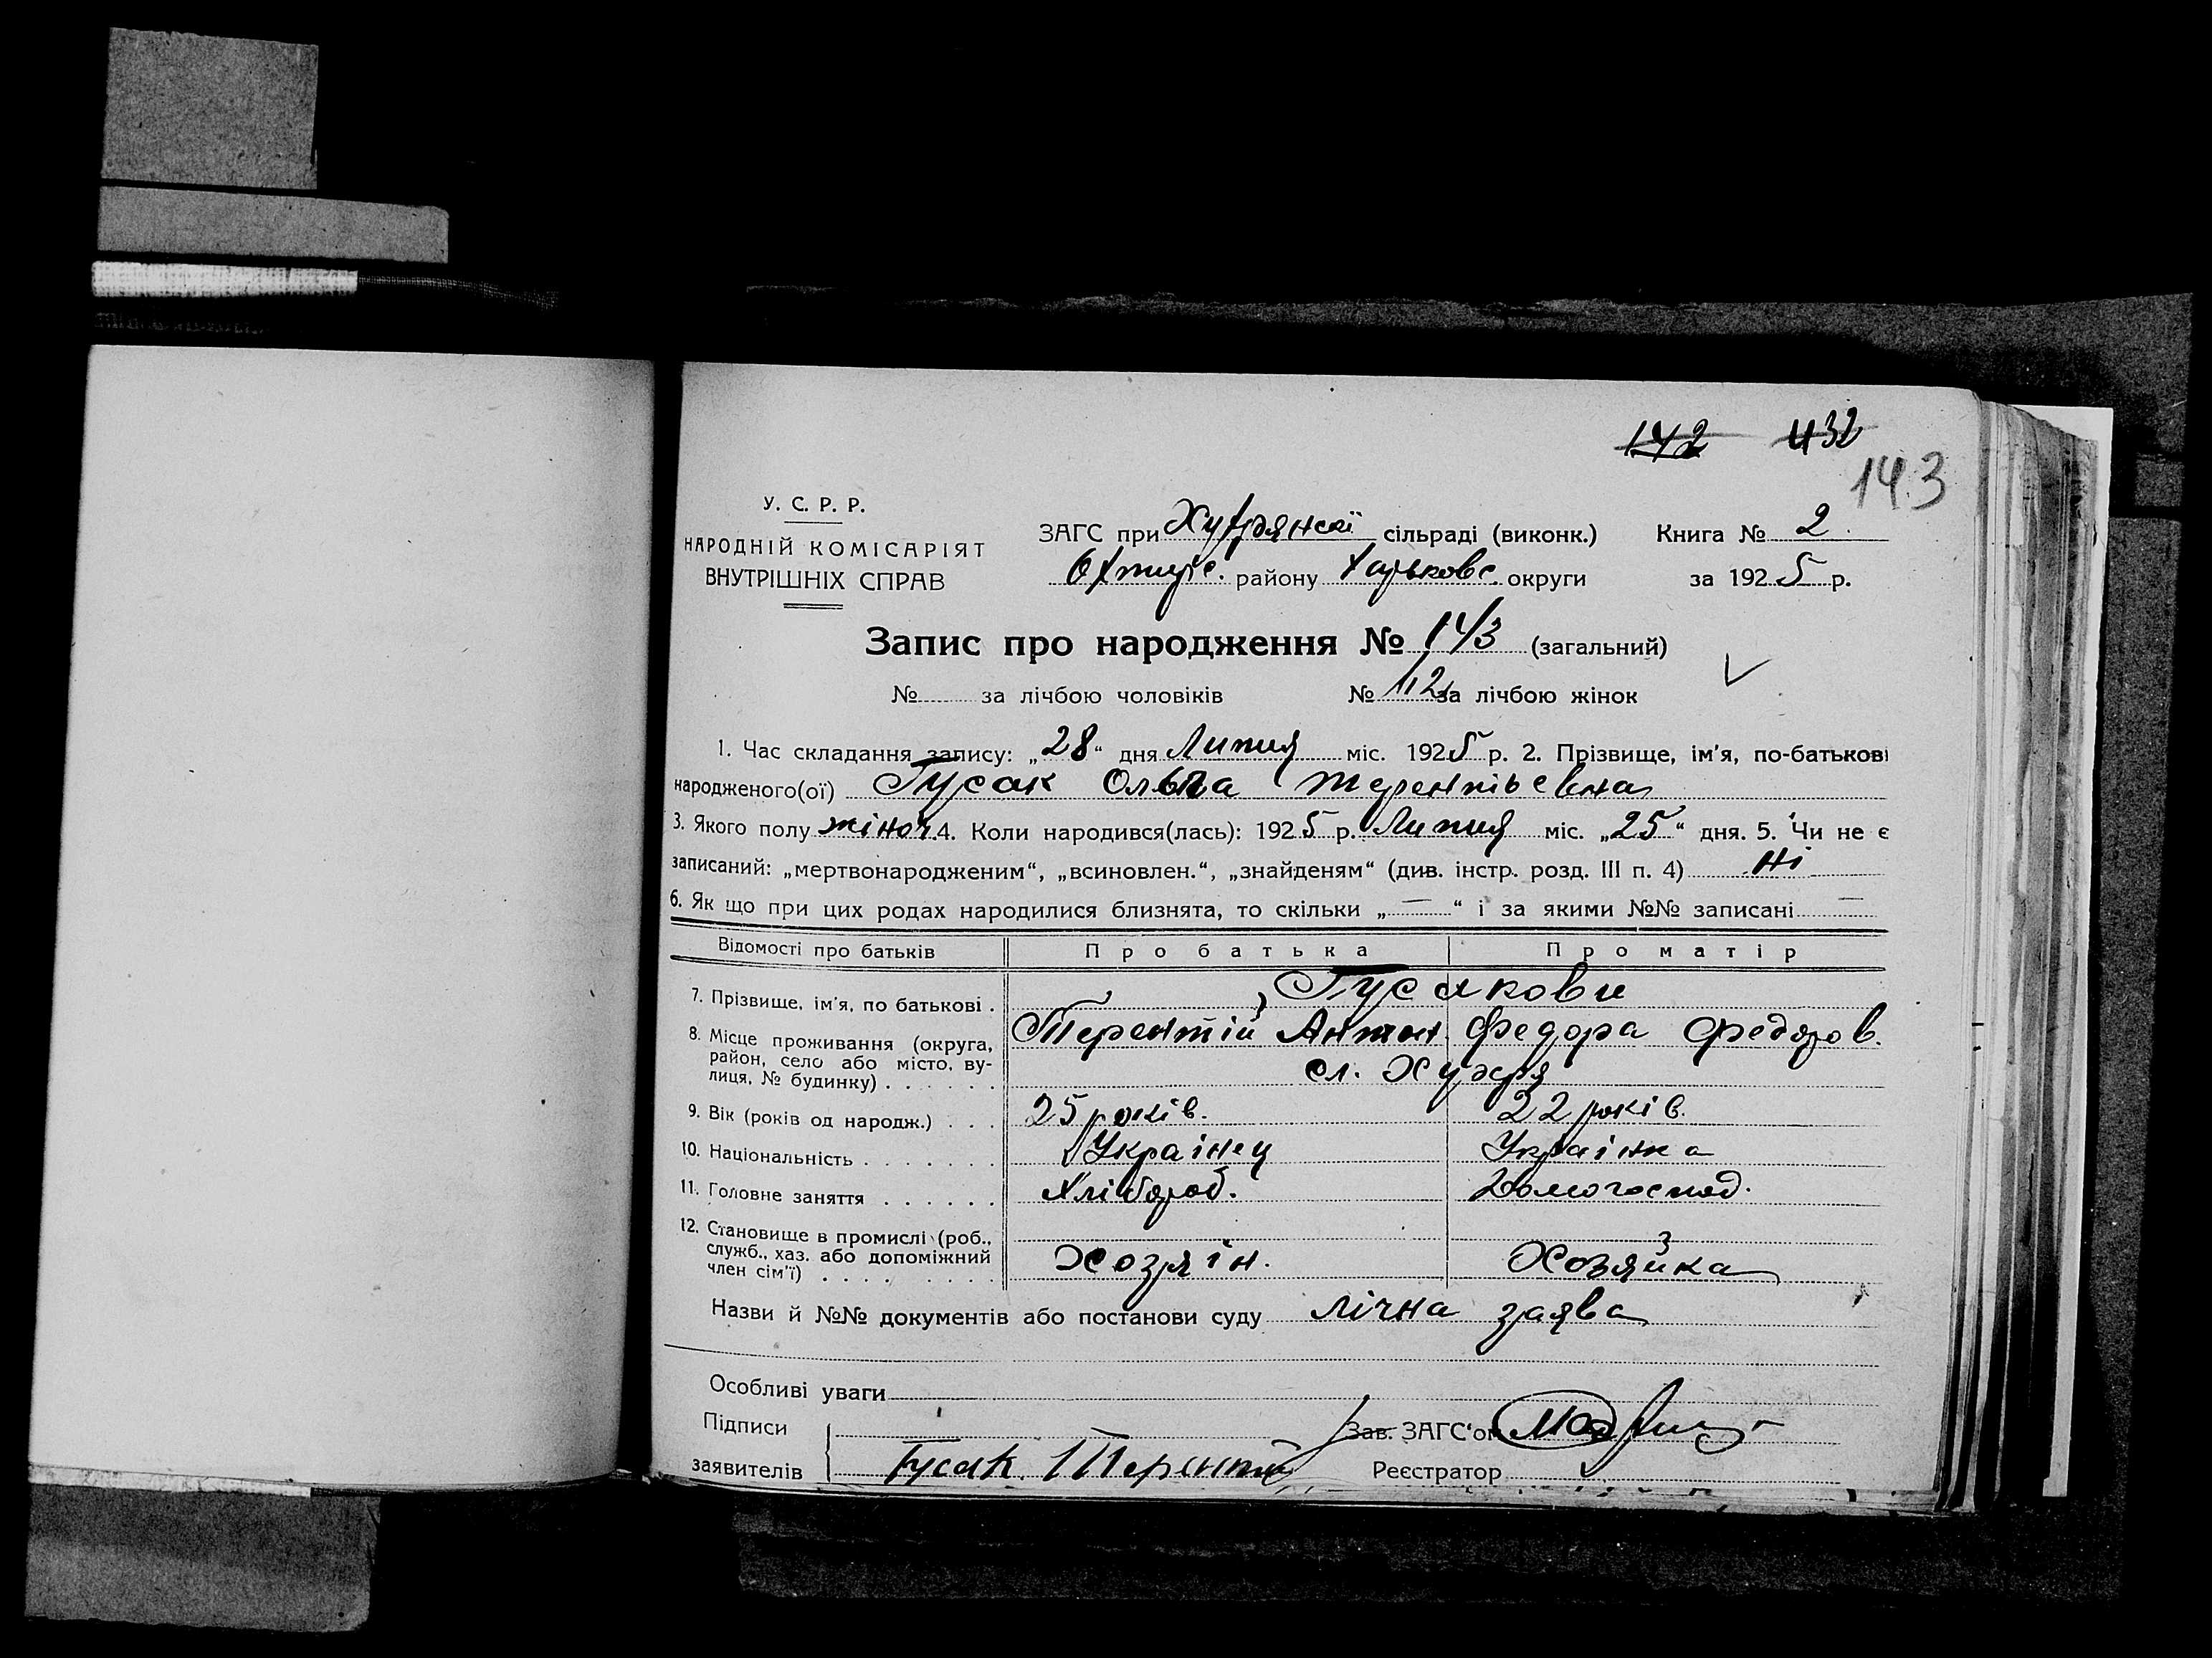 142 432
143
У. С. Р. Р.
НАРОДНІЙ КОМІСАРІЯТ
ВНУТРІШНІХ СПРАВ
ЗАГС при сільраді (виконк.) Книга № 2
Охтирс. району Харьковс. округи за 1925 р.
Запис про народження № 143 (загальний)
№ за лічбою чоловіків № 112 за лічбою жінок
1. Час складання запису: „28“ дня Липня міс. 1925 р. 2. Прізвище, ім'я, по-батькові
народженого(ої) Гусак Ольга Терентьевна
3. Якого полу жіноч. 4. Коли народився(лась): 1925 р. Липня міс. „25“ дня. 5. Чи не є
записаний: „мертвонародженим“, „всиновлен.“, „знайденям“ (див. інстр. розд. III п. 4) Ні
6. Як що при цих родах народилися близнята, то скільки „—“ і за якими №№ записані —
Відомості про батьків Про батька Про матір
7. Прізвище, ім'я, по батькові . Гусакови
Терентій Антон. Федора Федоров.
8. Місце проживання (округа,
район, село або місто, ву-
лиця, № будинку) . . . . . . сл. Хухря
9. Вік (років од народж.) . . . 25 років. 22 років.
10. Національність . . . . . . . Украінец Украінка
11. Головне заняття . . . . . . Хлібороб. Домогоспод.
12. Становище в промислі (роб.,
служб., хаз. або допоміжний
член сім'ї) . . . . . . . . . . Хозяін. Хозяйка
Назви й №№ документів або постанови суду лічна заява
Особливі уваги
Підписи Зав. ЗАГС'ом
заявителів Гусак Терентій Реєстратор